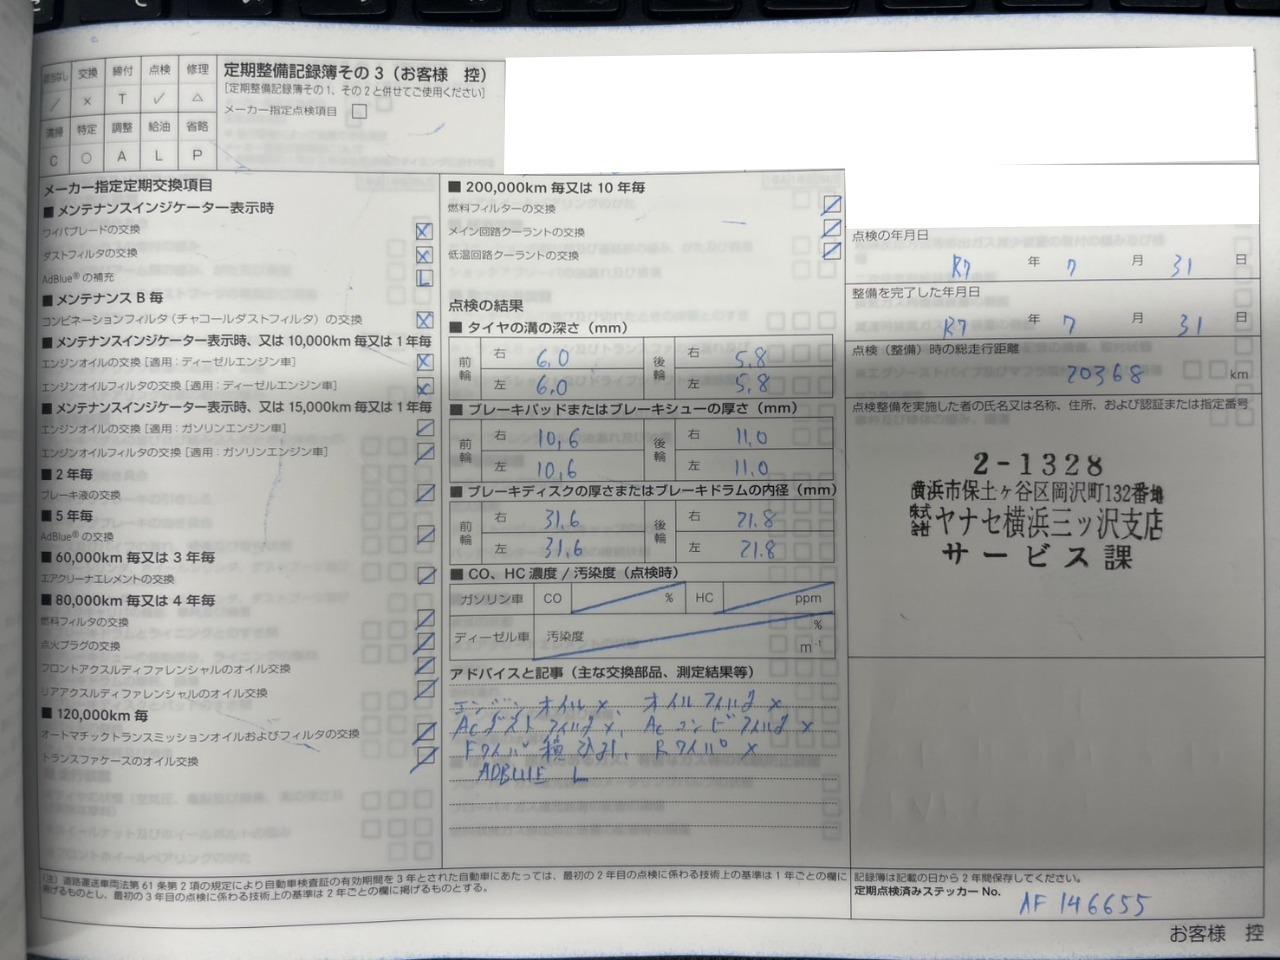 交換 締付 点検 修理
／ × T ✓ △
清掃 特定 調整 給油 省略
C ○ A L P
定期整備記録簿その3（お客様 控）
［定期整備記録簿その1、その2と併せてご使用ください］
メーカー指定点検項目 □
メーカー指定定期交換項目
■ メンテナンスインジケーター表示時
ワイパブレードの交換 ×
ダストフィルタの交換 ×
AdBlue®の補充 L
■ メンテナンス B 毎
コンビネーションフィルタ（チャコールダストフィルタ）の交換 ×
■ メンテナンスインジケーター表示時、又は 10,000km 毎又は 1 年毎
エンジンオイルの交換［適用：ディーゼルエンジン車］ ×
エンジンオイルフィルタの交換［適用：ディーゼルエンジン車］ ×
■ メンテナンスインジケーター表示時、又は 15,000km 毎又は 1 年毎
エンジンオイルの交換［適用：ガソリンエンジン車］ ／
エンジンオイルフィルタの交換［適用：ガソリンエンジン車］ ／
■ 2 年毎
ブレーキ液の交換 ／
■ 5 年毎
AdBlue®の交換 ／
■ 60,000km 毎又は 3 年毎
エアクリーナエレメントの交換 ／
■ 80,000km 毎又は 4 年毎
燃料フィルターの交換 ／
点火プラグの交換 ／
フロントアクスルディファレンシャルのオイル交換 ／
リアアクスルディファレンシャルのオイル交換 ／
■ 120,000km 毎
オートマチックトランスミッションオイルおよびフィルタの交換 ／
トランスファケースのオイル交換 ／
■ 200,000km 毎又は 10 年毎
燃料フィルターの交換 ／
メイン回路クーラントの交換 ／
低温回路クーラントの交換 ／
点検の結果
■ タイヤの溝の深さ（mm）
前輪 右 6.0 後輪 右 5.8
左 6.0 左 5.8
■ ブレーキパッドまたはブレーキシューの厚さ（mm）
前輪 右 10.6 後輪 右 11.0
左 10.6 左 11.0
■ ブレーキディスクの厚さまたはブレーキドラムの内径（mm）
前輪 右 31.6 後輪 右 21.8
左 31.6 左 21.8
■ CO、HC 濃度 / 汚染度（点検時）
ガソリン車 CO % HC ppm
ディーゼル車 汚染度 %
m⁻¹
アドバイスと記事（主な交換部品、測定結果等）
エンジンオイル ×、 オイルフィルタ ×
ACダストフィルタ ×、 ACコンビフィルタ ×
Fワイパ 積込み、 Rワイパ ×
ADBLUE L
点検の年月日
R7 年 7 月 31 日
整備を完了した年月日
R7 年 7 月 31 日
点検（整備）時の総走行距離
20368 km
点検整備を実施した者の氏名又は名称、住所、および認証または指定番号
2-1328
横浜市保土ヶ谷区岡沢町132番地
株式会社 ヤナセ横浜三ッ沢支店
サービス課
（注）道路運送車両法第 61 条第 2 項の規定により自動車検査証の有効期間を 3 年とされた自動車にあたっては、最初の 2 年目の点検に係わる技術上の基準は 1 年ごとの欄に
掲げるものとし、最初の 3 年目の点検に係わる技術上の基準は 2 年ごとの欄に掲げるものとする。
記録簿は記載の日から 2 年間保存してください。
定期点検済みステッカー No.
AF 146655
お客様 控